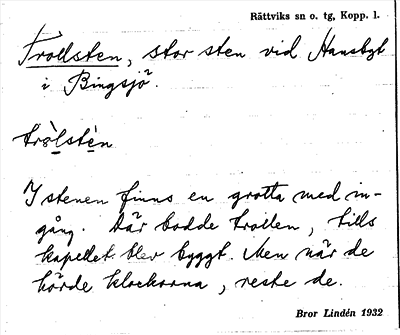 Rättviks sn o. tg, Kopp. l.
Trollsten, stor sten vid Hansbyt
i Bingsjö.
trò̲lstè̲n
I stenen finns en grotta med in-
gång. Där bodde trollen, tills
kapellet blev byggt. Men när de
hörde klockorna, reste de.
Bror Lindén 1932